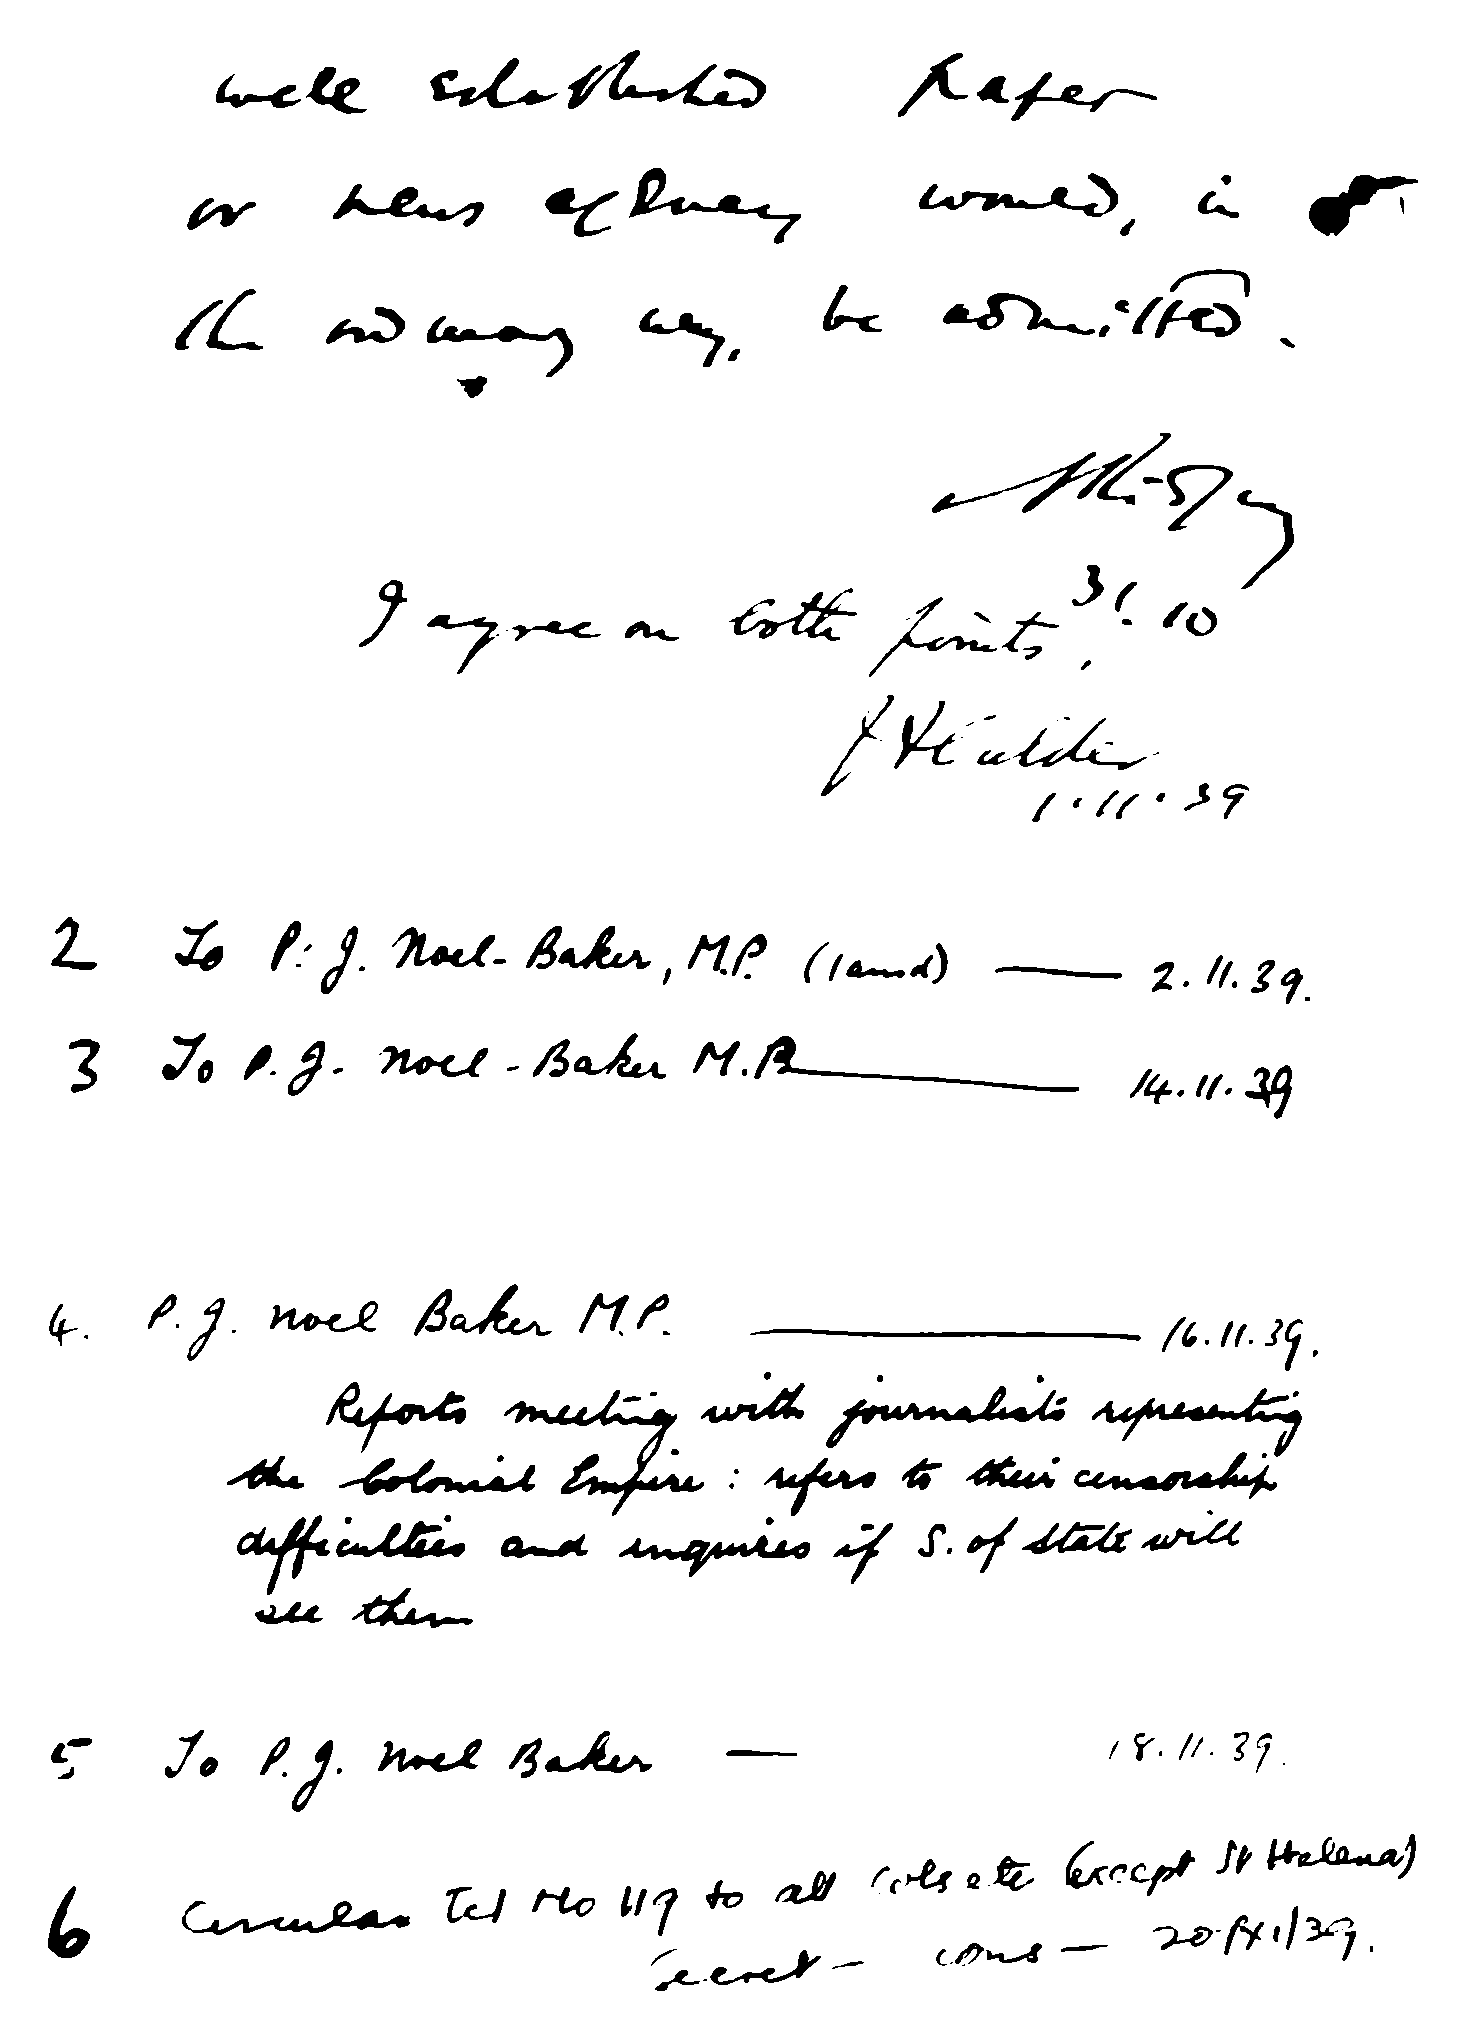 well established paper
or news agency would, in
the ordinary way, be admitted.
31.10
I agree on both points.
J A Calder
1.11.39
2 To P. J. Noel-Baker, M.P. (1 ansd) — 2.11.39.
3 To P. J. Noel-Baker M.P. — 14.11.39
4. P. J. Noel Baker M.P. — 16.11.39.
Reports meeting with journalists representing
the Colonial Empire : refers to their censorship
difficulties and inquires if S. of State will
see them
5 To P. J. Noel Baker — 18.11.39.
6 Circular Tel No 119 to all Cols etc (except St Helena)
Secret — cons — 20/XI/39.